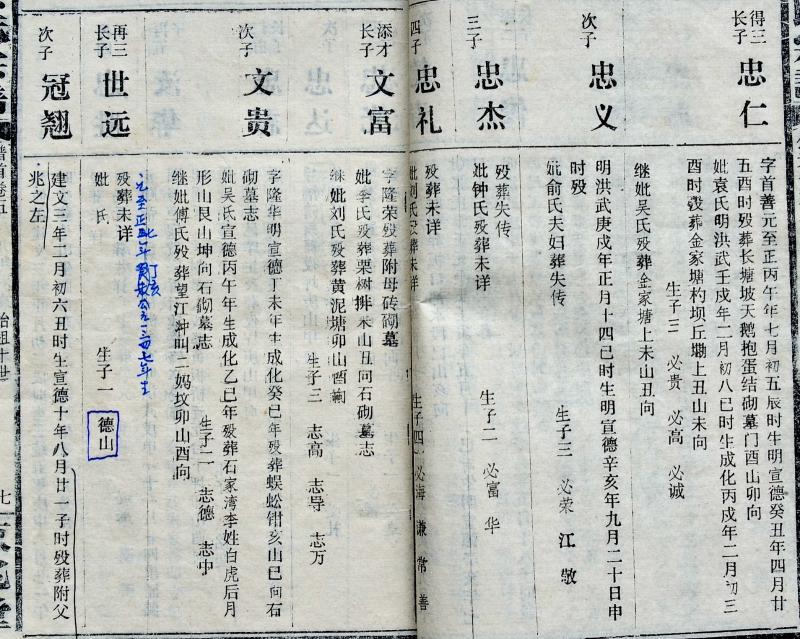 得三
长子
忠仁
字首善元至正丙午年七月初五辰时生明宣德癸丑年四月廿
五酉时殁葬长塘坡天鹅抱蛋结砌墓门酉山卯向
妣袁氏明洪武壬戌年二月初八巳时生成化丙戌年二月初三
酉时殁葬金家塘杓坝丘塝上丑山未向
生子三 必贵 必高 必诚
继妣吴氏殁葬金家塘上未山丑向
次子
忠义
明洪武庚戌年正月十四己时生明宣德辛亥年九月二十日申
时殁
妣俞氏夫妇葬失传
生子三 必荣 江 敬
三子
忠杰
殁葬失传
妣钟氏殁葬未详
生子二 必富 华
四子
忠礼
殁葬未详
妣刘氏殁葬未详
生子四 必海 谦 常 善
添才
长子
文富
字隆荣殁葬附母砖砌墓
妣李氏殁葬栗树排未山丑向石砌墓志
继妣刘氏殁葬黄泥塘卯山酉向
生子三 志高 志导 志万
次子
文贵
字隆华明宣德丁未年生成化癸巳年殁葬蜈蚣钳亥山巳向石
砌墓志
妣吴氏宣德丙午年生成化乙巳年殁葬石家湾李姓白虎后月
形山艮山坤向石砌墓志
生子二 志德 志中
继妣傅氏殁葬望江冲叫二妈坟卯山酉向
再三
长子
世远
殁葬未详
妣 氏
生子一 德山
次子
冠翘
建文三年二月初六丑时生宣德十年八月廿一子时殁葬附父
兆之左
谱首卷五
始祖十世
七